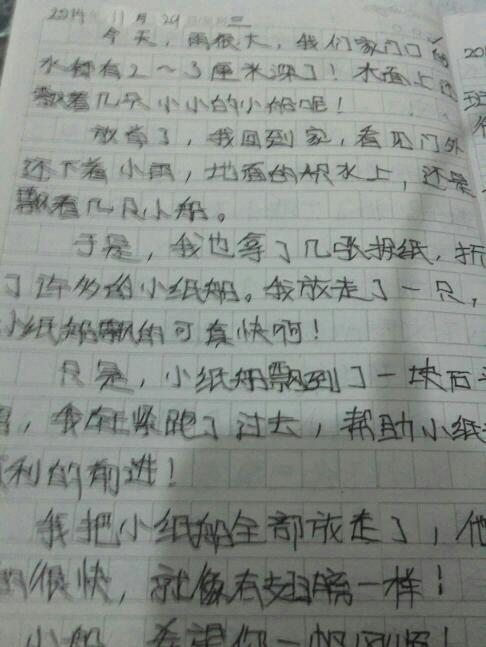 2014 11月29
今天，雨很大，我们家门口的
水都有2～3厘米深了！水面上还
飘着几只小小的小船呢！
放学了，我回到家，看见门外
还下着小雨，地面的积水上，还是
飘着几只小船。
于是，我也拿了几张报纸，折
了许多的小纸船。我放走了一只，
小纸船飘的可真快啊！
只是，小纸船飘到了一块石
，我赶紧跑了过去，帮助小纸
利的前进！
我把小纸船全部放走了，他
的很快，就像有翅膀一样！
小船，希望你一帆风顺！